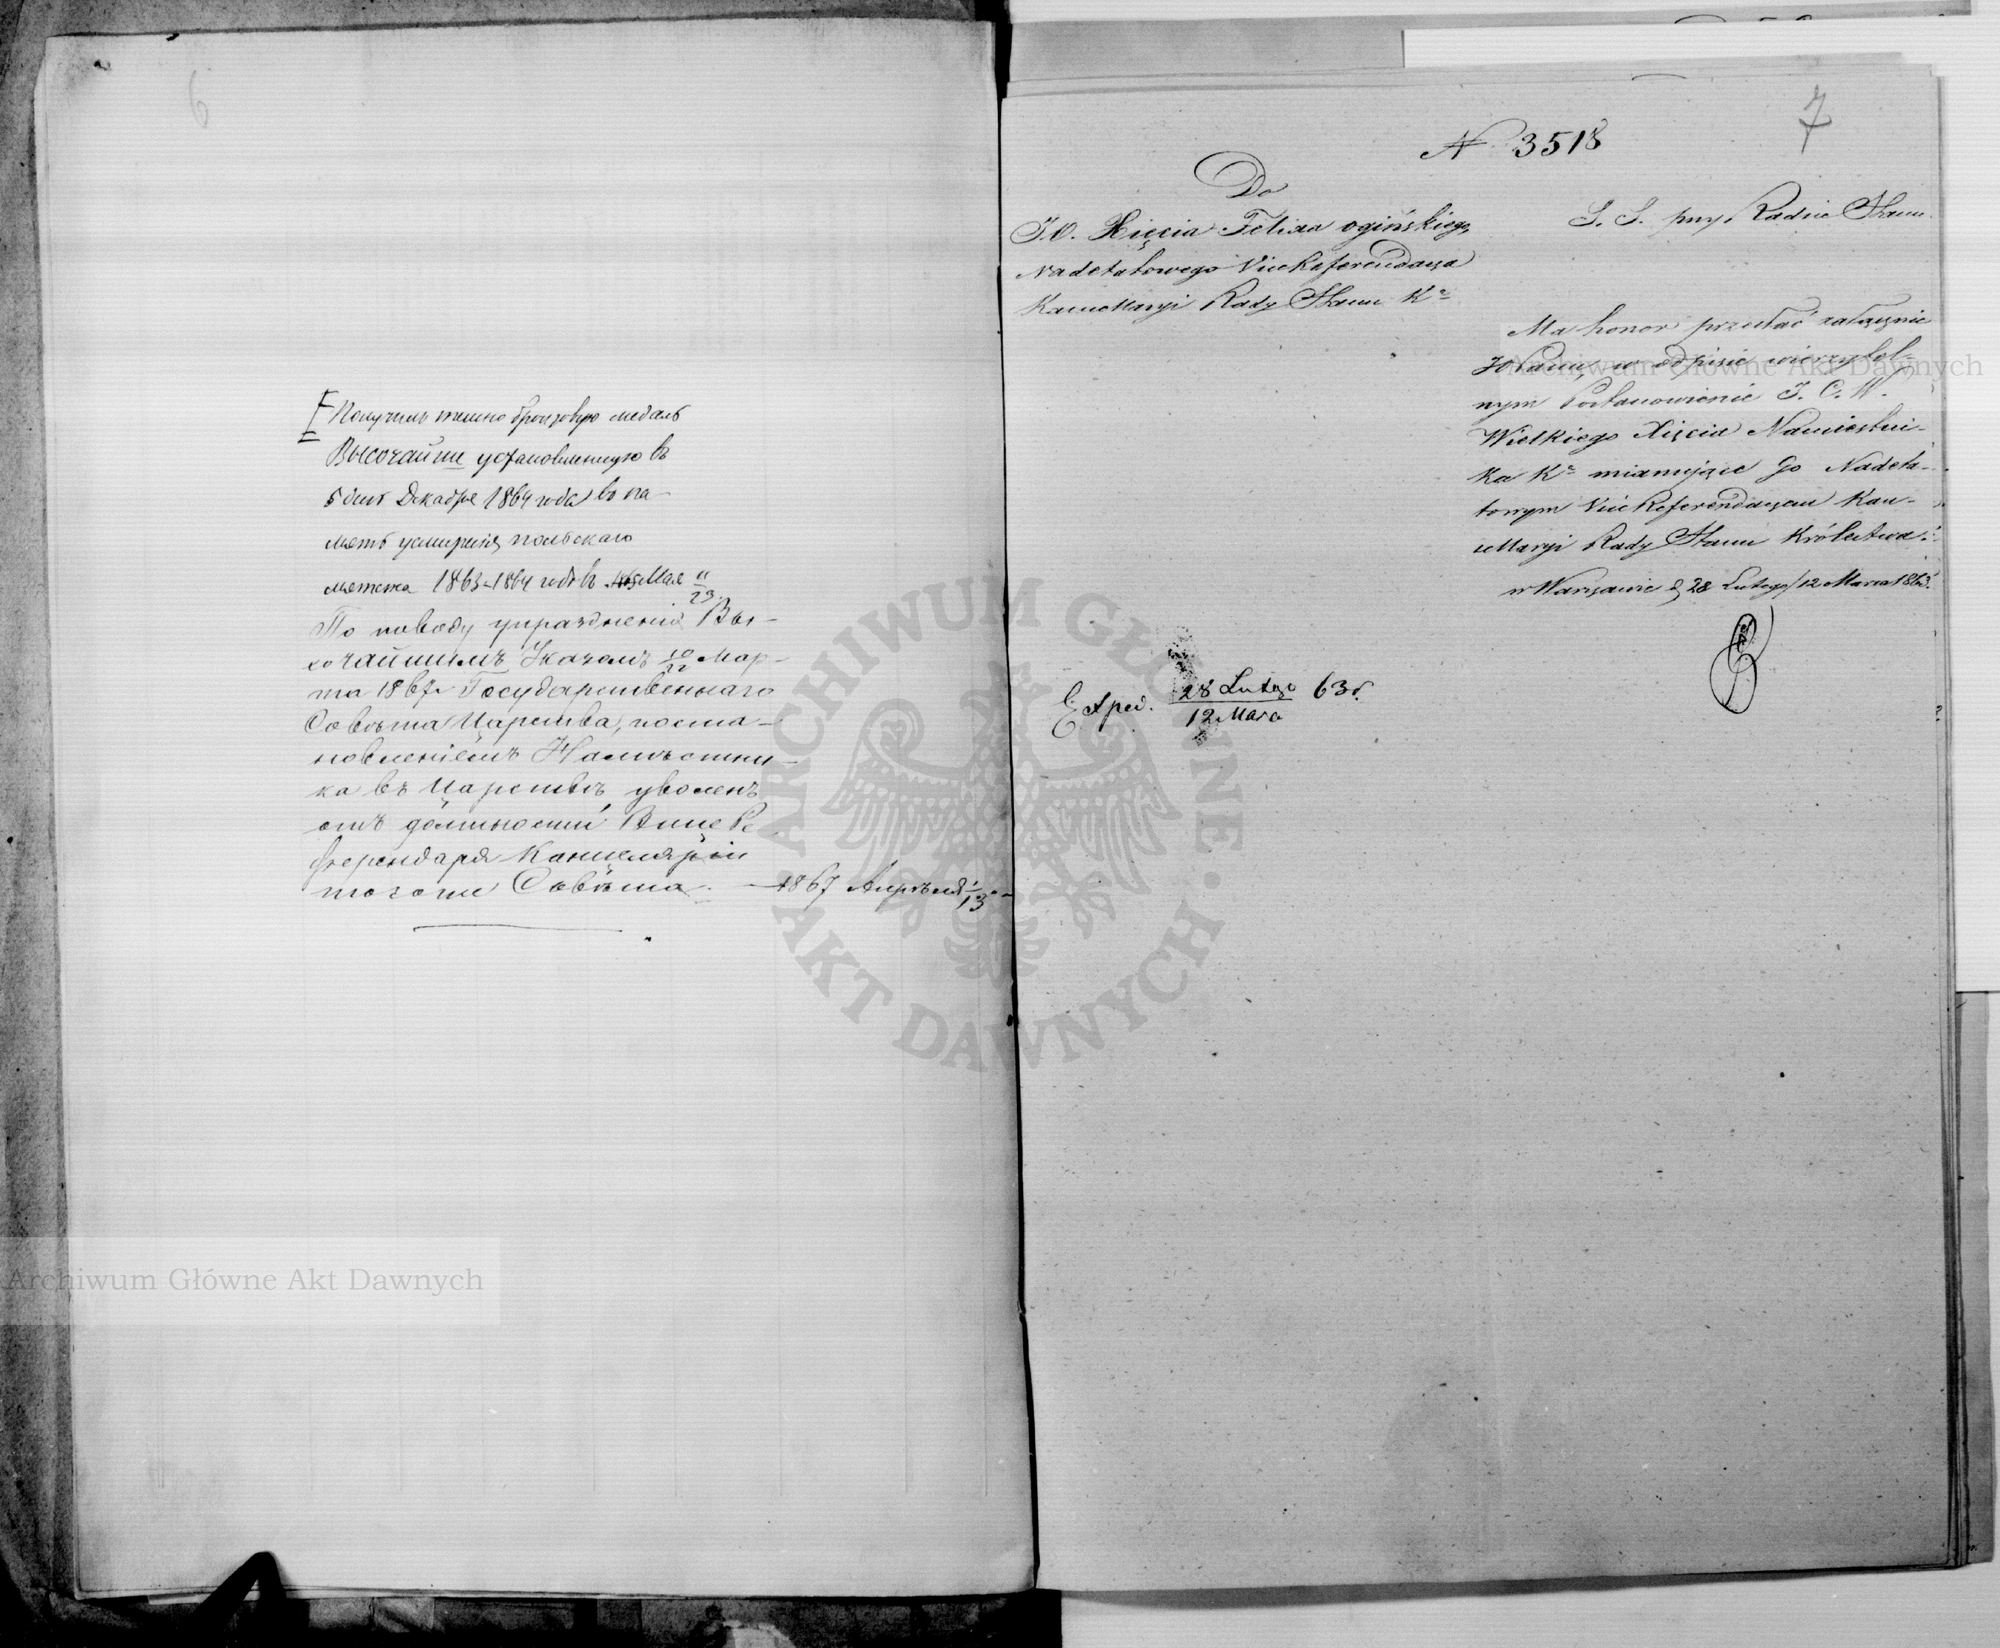 6
Получилъ темно бронзовую медаль
Высочайше установленную въ
5 день Декабря 1864 года въ па-
мять усмиренія польскаго
мятежа 1863-1864 годовъ Мая 11/23.
По поводу упраздненія Вы-
сочайшимъ Указомъ 10/22 Мар-
та 1867 г Государственнаго
Совѣта Царства, поста-
новленіемъ Намѣстни-
ка въ Царствѣ уволенъ
отъ должности ВицеРе
ферендаря Канцеляріи
тогоже Совѣта. — 1867 Апрѣля 1/13
7
N 3518
Do
J.O. Xięcia Felixa Ogińskiego,
Nadetatowego ViceReferendarza
Kancellaryi Rady Stanu Kr
S. S. przy Radzie Stanu
Ma honor przesłać załącznie
JO Panu, w odpisie wierzytel-
nym Postanowienie J. C. W.
Wielkiego Xięcia Namiestni-
ka Kr mianujące Go Nadeta-
towym ViceReferendarzem Kan-
cellaryi Rady Stanu Królestwa.
w Warszawie d 28 Lutego/12 Marca 1863.
Exped. 28 Lutego/12 Marca 63 r.
Archiwum Główne Akt Dawnych
Archiwum Główne Akt Dawnych
ARCHIWUM GŁÓWNE AKT DAWNYCH